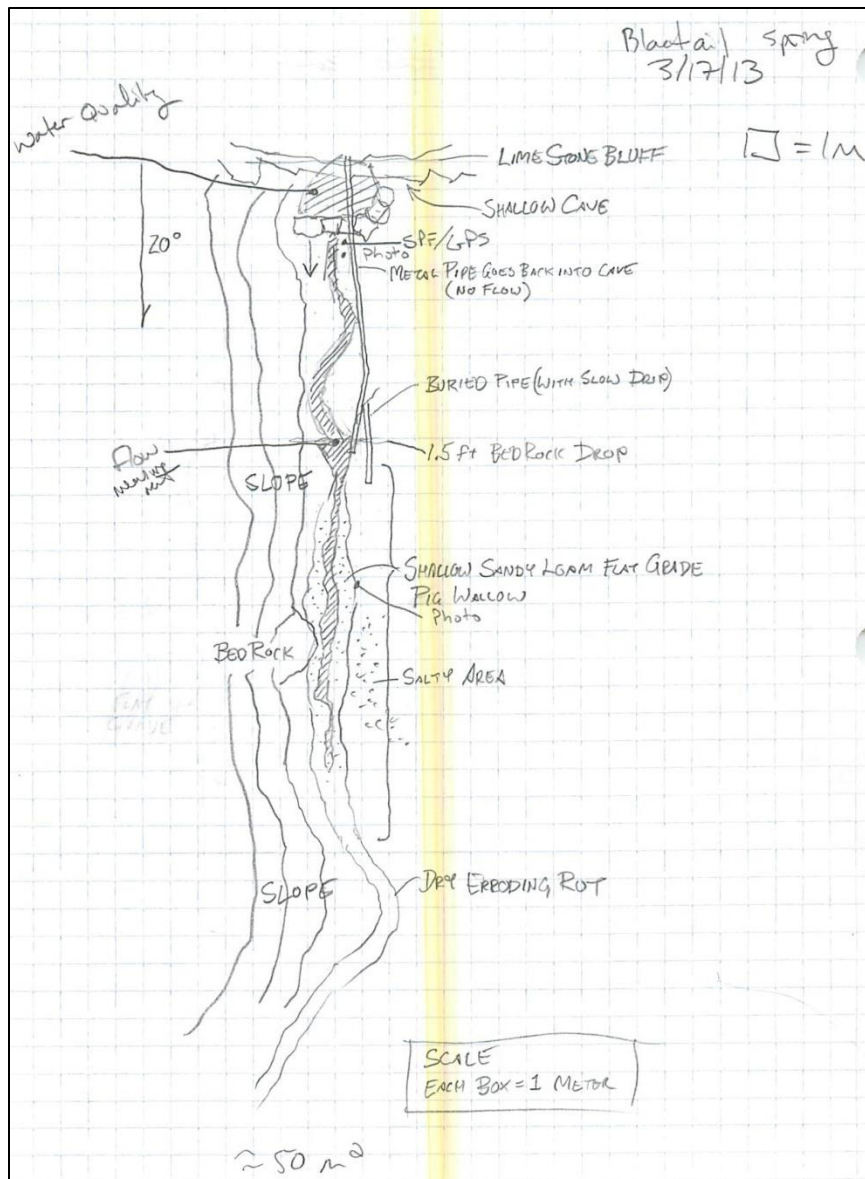 Blactail Spring
3/17/13
Water Quality
LIMESTONE BLUFF
= 1M
SHALLOW CAVE
20°
SPF/GPS
Photo
METAL PIPE GOES BACK INTO CAVE
(NO FLOW)
BURIED PIPE (WITH SLOW DRIP)
Flow
1.5 ft BEDROCK DROP
SLOPE
SHALLOW SANDY LOAM FLAT GRADE
PIG WALLOW
Photo
BEDROCK
SALTY AREA
FLAT
GRADE
SLOPE
DRY ERRODING RUT
SCALE
EACH BOX = 1 METER
≈ 50 m²